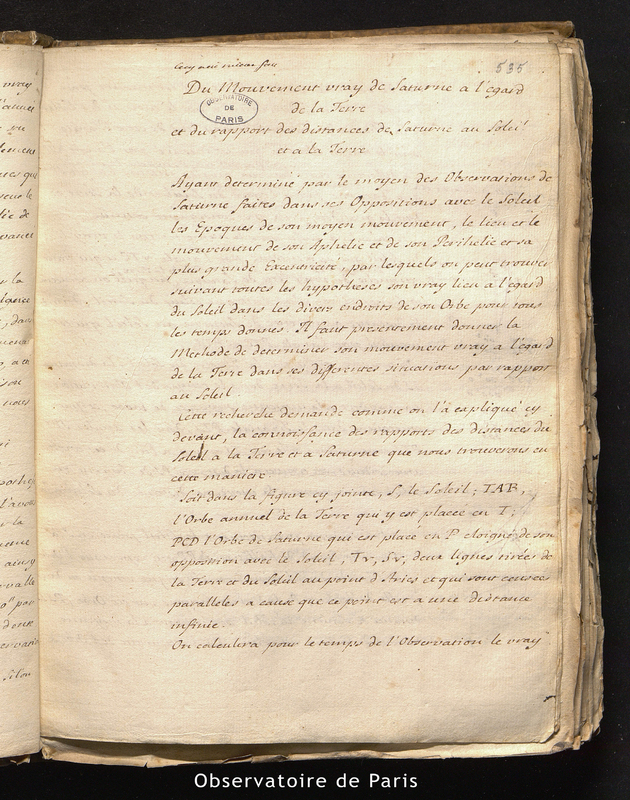 535
Du Mouvement vray de Saturne a l'egard
de la Terre
OBSERVATOIRE
DE
PARIS
et du rapport des distances de Saturne au Soleil
et a la Terre
Ayant determiné par le moyen des Observations de
Saturne faites dans ses Oppositions avec le Soleil
les Epoques de son moyen mouvement, le lieu et le
mouvement de son Aphelie et de son Perihelie et sa
plus grande Excentricité, par lesquels on peut trouver
suivant toutes les hypotheses son vray lieu a l'egard
du Soleil dans les divers endroits de son Orbe pour tous
les temps donnés. Il faut presentement donner la
Methode de determiner son mouvement vray a l'egard
de la Terre dans ses differentes situations par rapport
au Soleil.
Cette recherche demande comme on l'a expliqué cy
devant, la connoissance des rapports des distances du
Soleil a la Terre et a Saturne que nous trouverons en
cette maniere
Soit dans la figure cy jointe, S, le Soleil; TAB,
l'Orbe annuel de la Terre qui y est placée en T;
PCD l'Orbe de Saturne qui est placé en P eloigné de son
opposition avec le Soleil, Tv, Sv, deux lignes tirées de
la Terre et du Soleil au point d'Aries et qui sont censées
paralleles a cause que ce point est a une distance
infinie.
On calculera pour le temps de l'Observation le vray
Observatoire de Paris